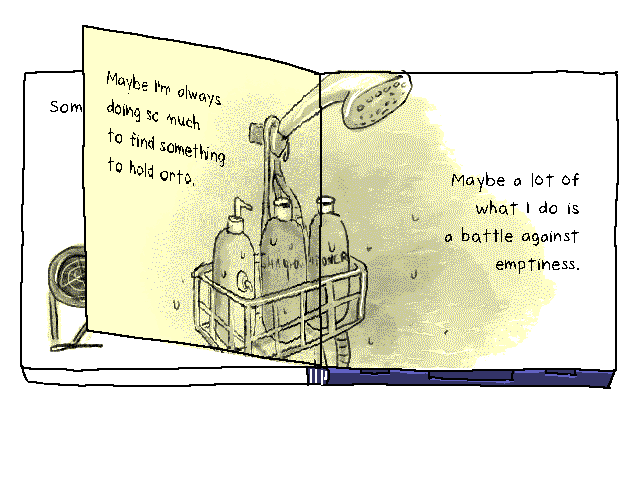 Som
Maybe I'm always
doing so much
to find something
to hold onto.
Maybe a lot of
what I do is
a battle against
emptiness.